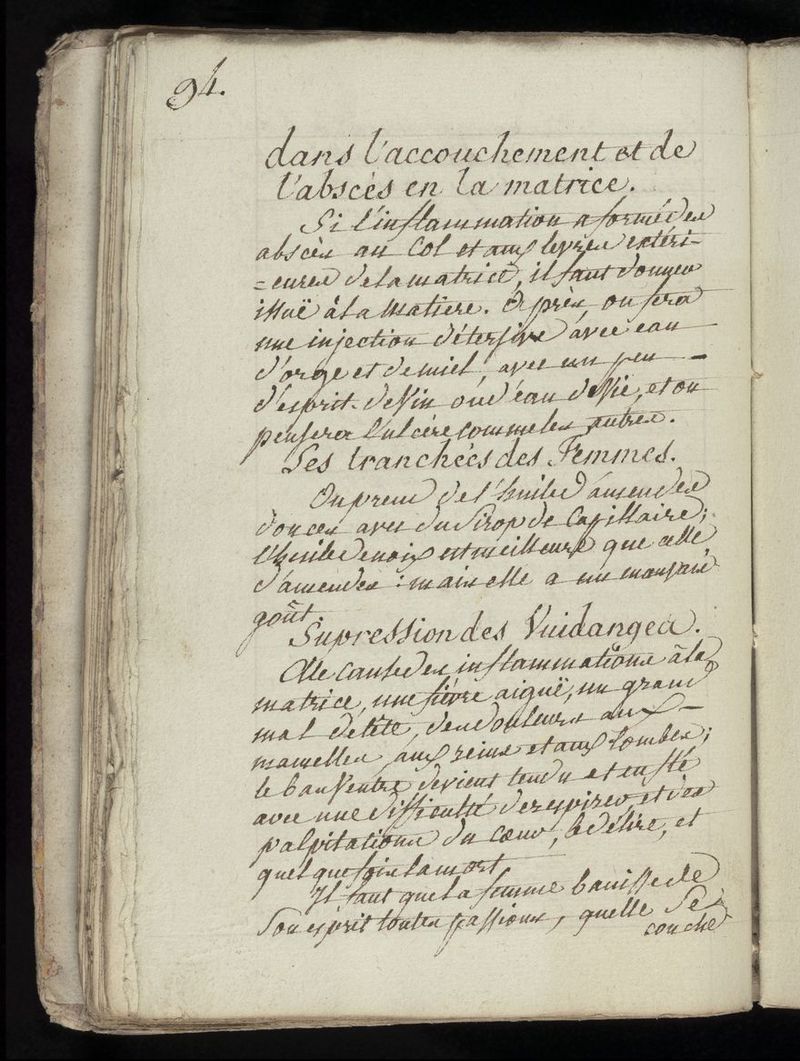 94.
dans l'accouchement et de
l'abscès en la matrice.
Si l'inflammation a formé des
abscès au Col et aux levres extéri-
=eures de la matrice, il faut donner
issuë à la Matiere. Après on fera
une injection détersive avec eau
d'orge et de miel, avec un peu -
d'esprit de Vin ou d'eau de Vie, et on
pensera l'ulcére comme les autres.
Les tranchées des Femmes.
On prend de l'huile d'amendes
douces avec du Sirop de Capillaire;
l'huile de noix est meilleure que celle
d'amendes : mais elle a un mauvais
goût.
Supression des Vuidanges.
Elle cause des inflammations à la
matrice, une fiévre aiguë, un grand
mal de tête, des douleurs aux -
mamelles, aux reins et aux Lombes;
le bas Ventre devient tendu et enflé
avec une difficulté de respirer, et des
palpitations du cœur, le délire, et
quelque fois la mort.
Il faut que la femme bannisse de
Son esprit toutes passions, quelle Se
couche